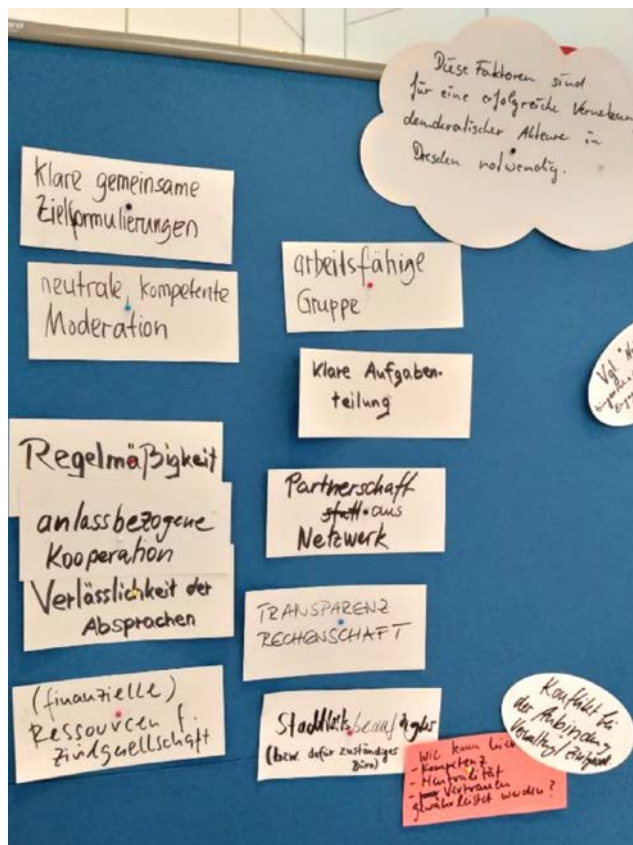 Diese Faktoren sind
für eine erfolgreiche Vernetzun
demokratischer Akteure in
Dresden notwendig.
Klare gemeinsame
Zielformulierungen
neutrale, kompetente
Moderation
Regelmäßigkeit
anlassbezogene
Kooperation
Verlässlichkeit der
Absprachen
(finanzielle)
Ressourcen f.
Zivilgesellschaft
arbeitsfähige
Gruppe
klare Aufgaben-
teilung
Partnerschaft
statt aus
Netzwerk
TRANSPARENZ
RECHENSCHAFT
(bzw. dafür zuständiges
Büro)
Wie kann hier
- Kompetenz
- Neutralität
- Vertrauen
gewährleistet werden?
Konflikt bei
der Anbindung
Verwaltung/
Vgl.